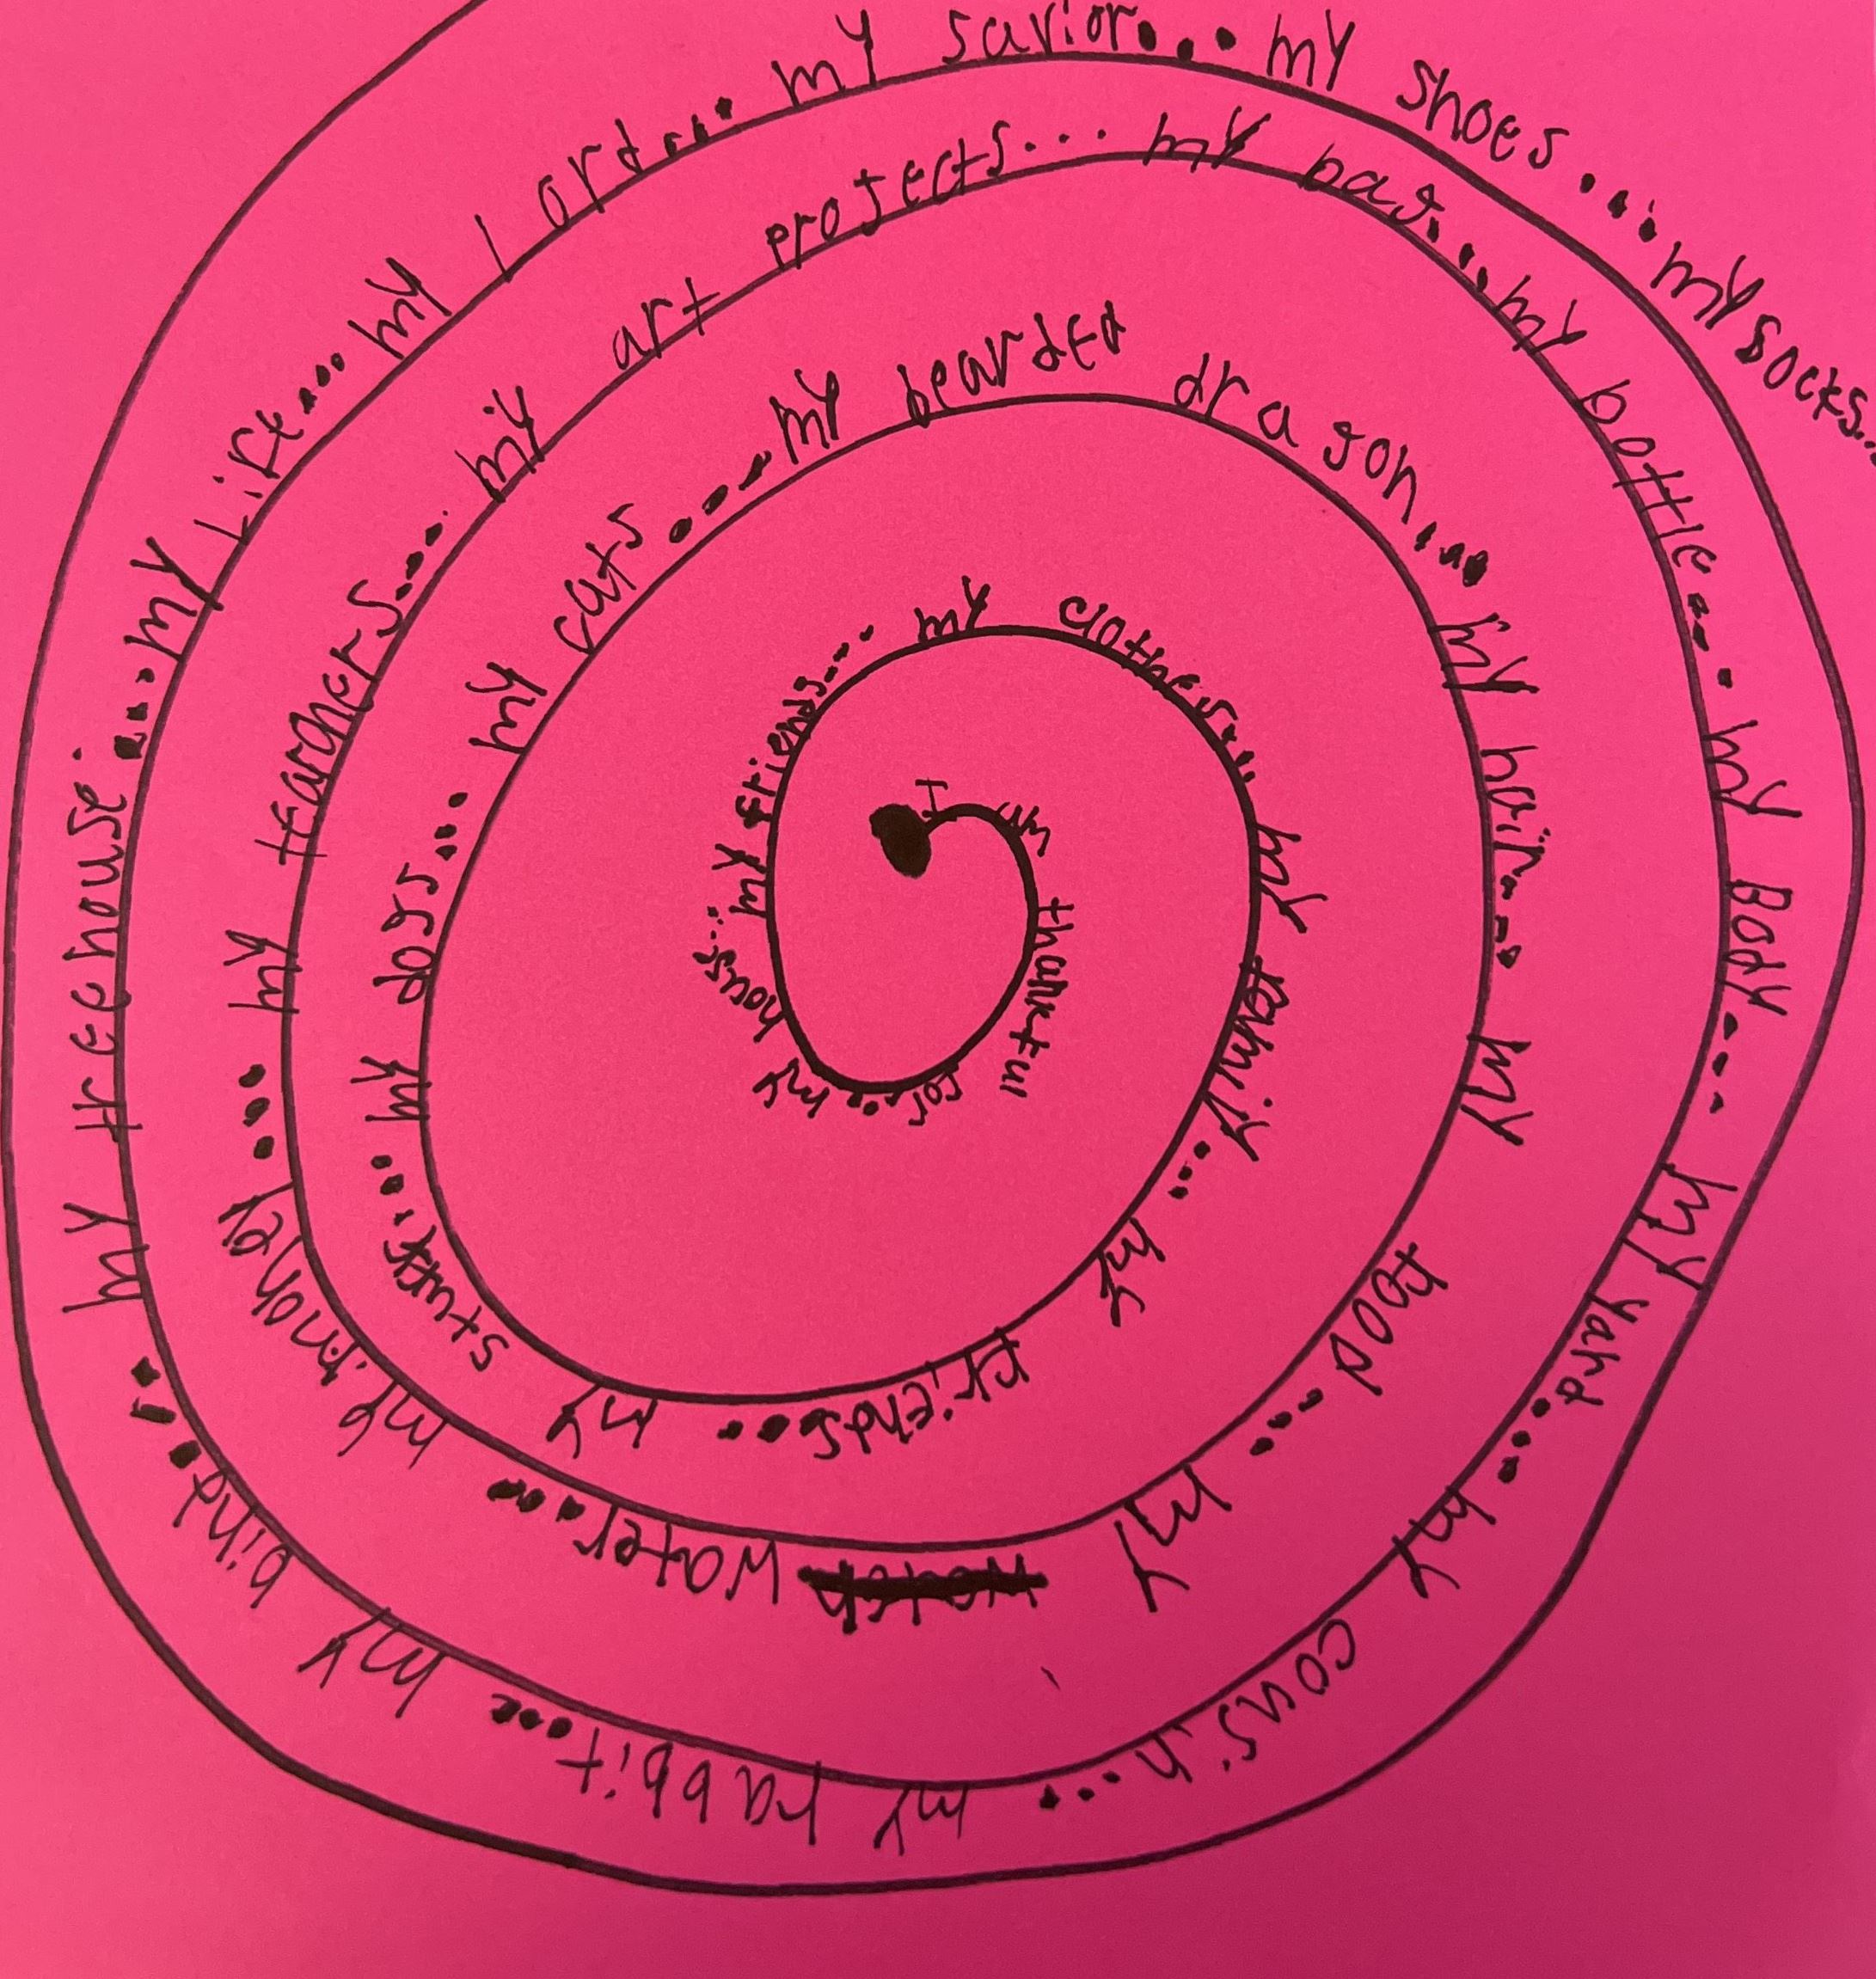 I am thankful for... my house... my friends... my clothes... my family... my friends... my stuff... my dogs... my cats.... my bearded dragon... my hair.... my food... my water... my money... my teachers... my art projects... my bag... my bottle... my Body.... my yard.... my cousin... my rabbit... my bird... my treehouse.... my Life.... my lord... my savior... my shoes.... my socks...